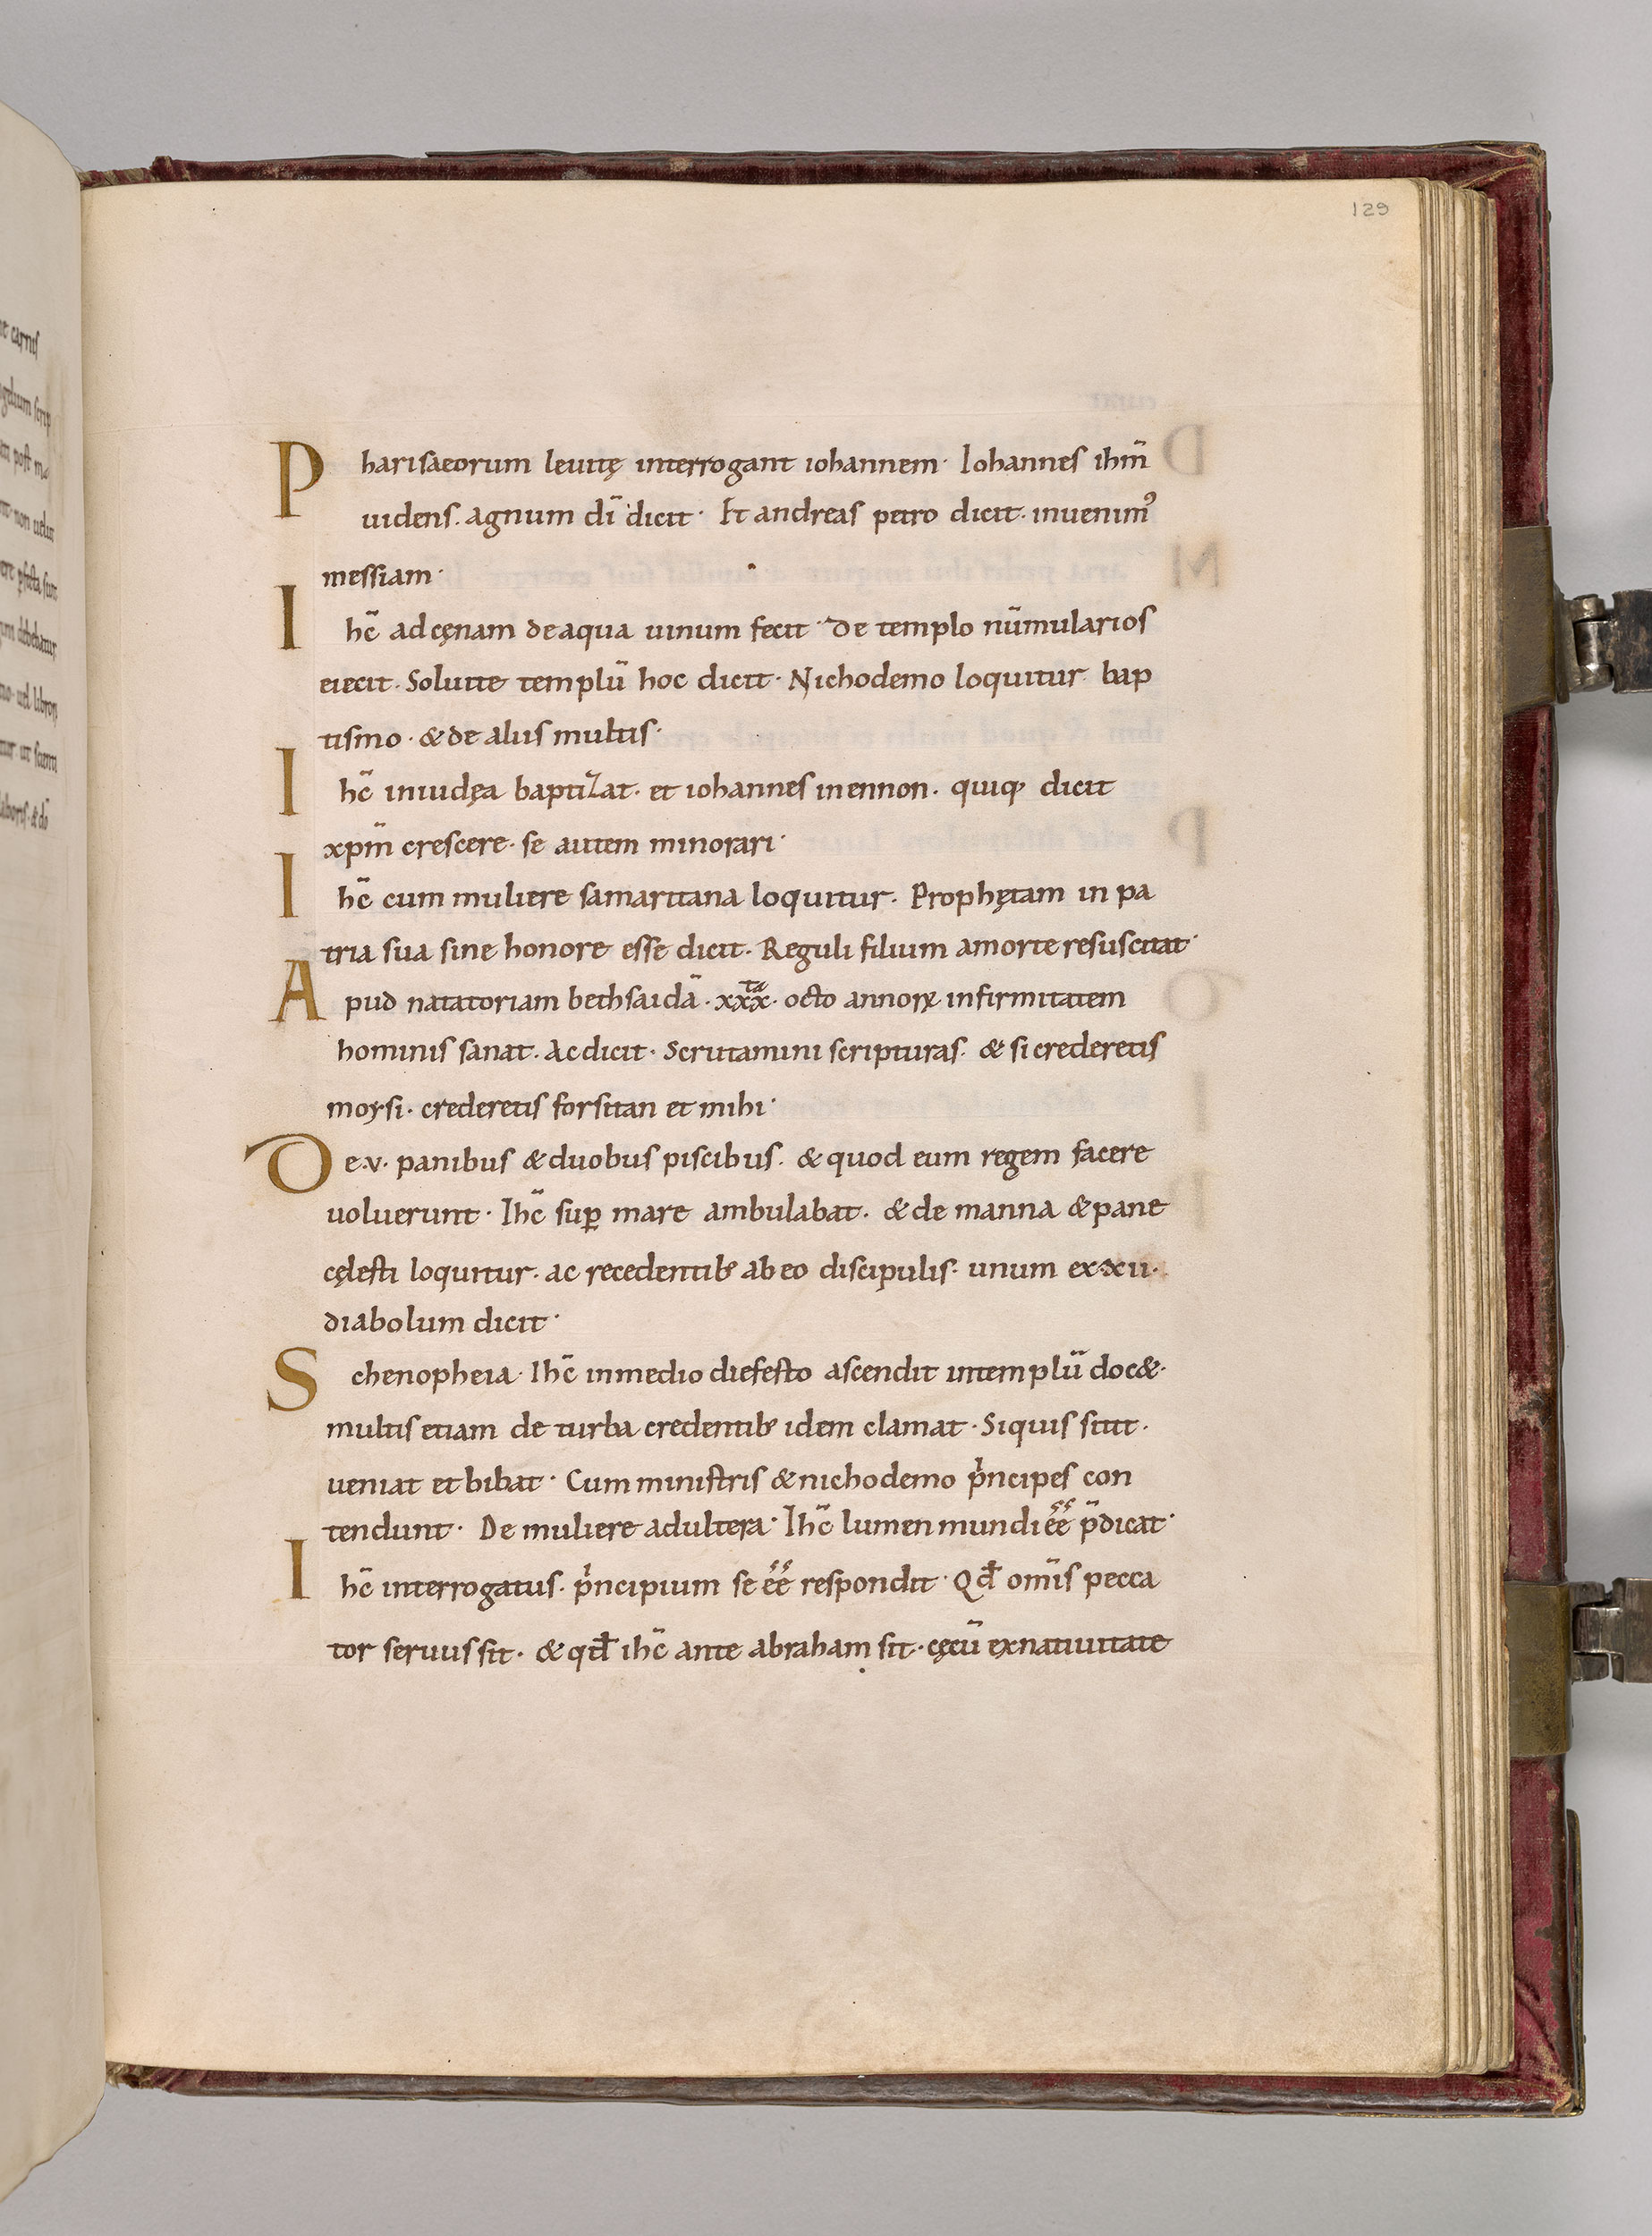 129
Pharisaeorum leuitę interrogant iohannem· Iohannes ihm̄
uidens. agnum dī dicit· Et andreas petro dicit. inuenimꝰ
messiam·
Ihc̄ ad cęnam de aqua uinum fecit· De templo nūmularios
eiecit. Soluite templū hoc dicit· Nichodemo loquitur bap
tismo· & de aliis multis·
Ihc̄ in iudęa baptizat. et iohannes in ennon. quiq; dicit
xpm̄ crescere. se autem minorari·
Ihc̄ cum muliere samaritana loquitur. Prophętam in pa
tria sua sine honore esse dicit. Reguli filium a morte resuscitat·
Apud natatoriam bethsaidā· xxx^ta· octo annoꝝ infirmitatem
hominis sanat. Ac dicit· Scrutamini scripturas. & si crederetis
moysi. crederetis forsitan et mihi·
De .v. panibus & duobus piscibus. & quod eum regem facere
uoluerunt· Ihc̄ suꝑ mare ambulabat. & de manna & pane
cęlesti loquitur. ac recedentib; ab eo discipulis. unum ex xii.
diabolum dicit·
Schenopheia· Ihc̄ in medio die festo ascendit in templū doc&·
multis etiam de turba credentib; idem clamat· Si quis sitit.
ueniat et bibat· Cum ministris & nichodemo pͥncipes con
tendunt· De muliere adultera· Ihc̄ lumen mundi e͛e͛ p̄dicat·
Ihc̄ interrogatus. pͥncipium se e͛e͛ respondit· Qđ om̄is pecca
tor seruus sit. & qđ ihc̄ ante abraham sit· cęcū ex natiuitate